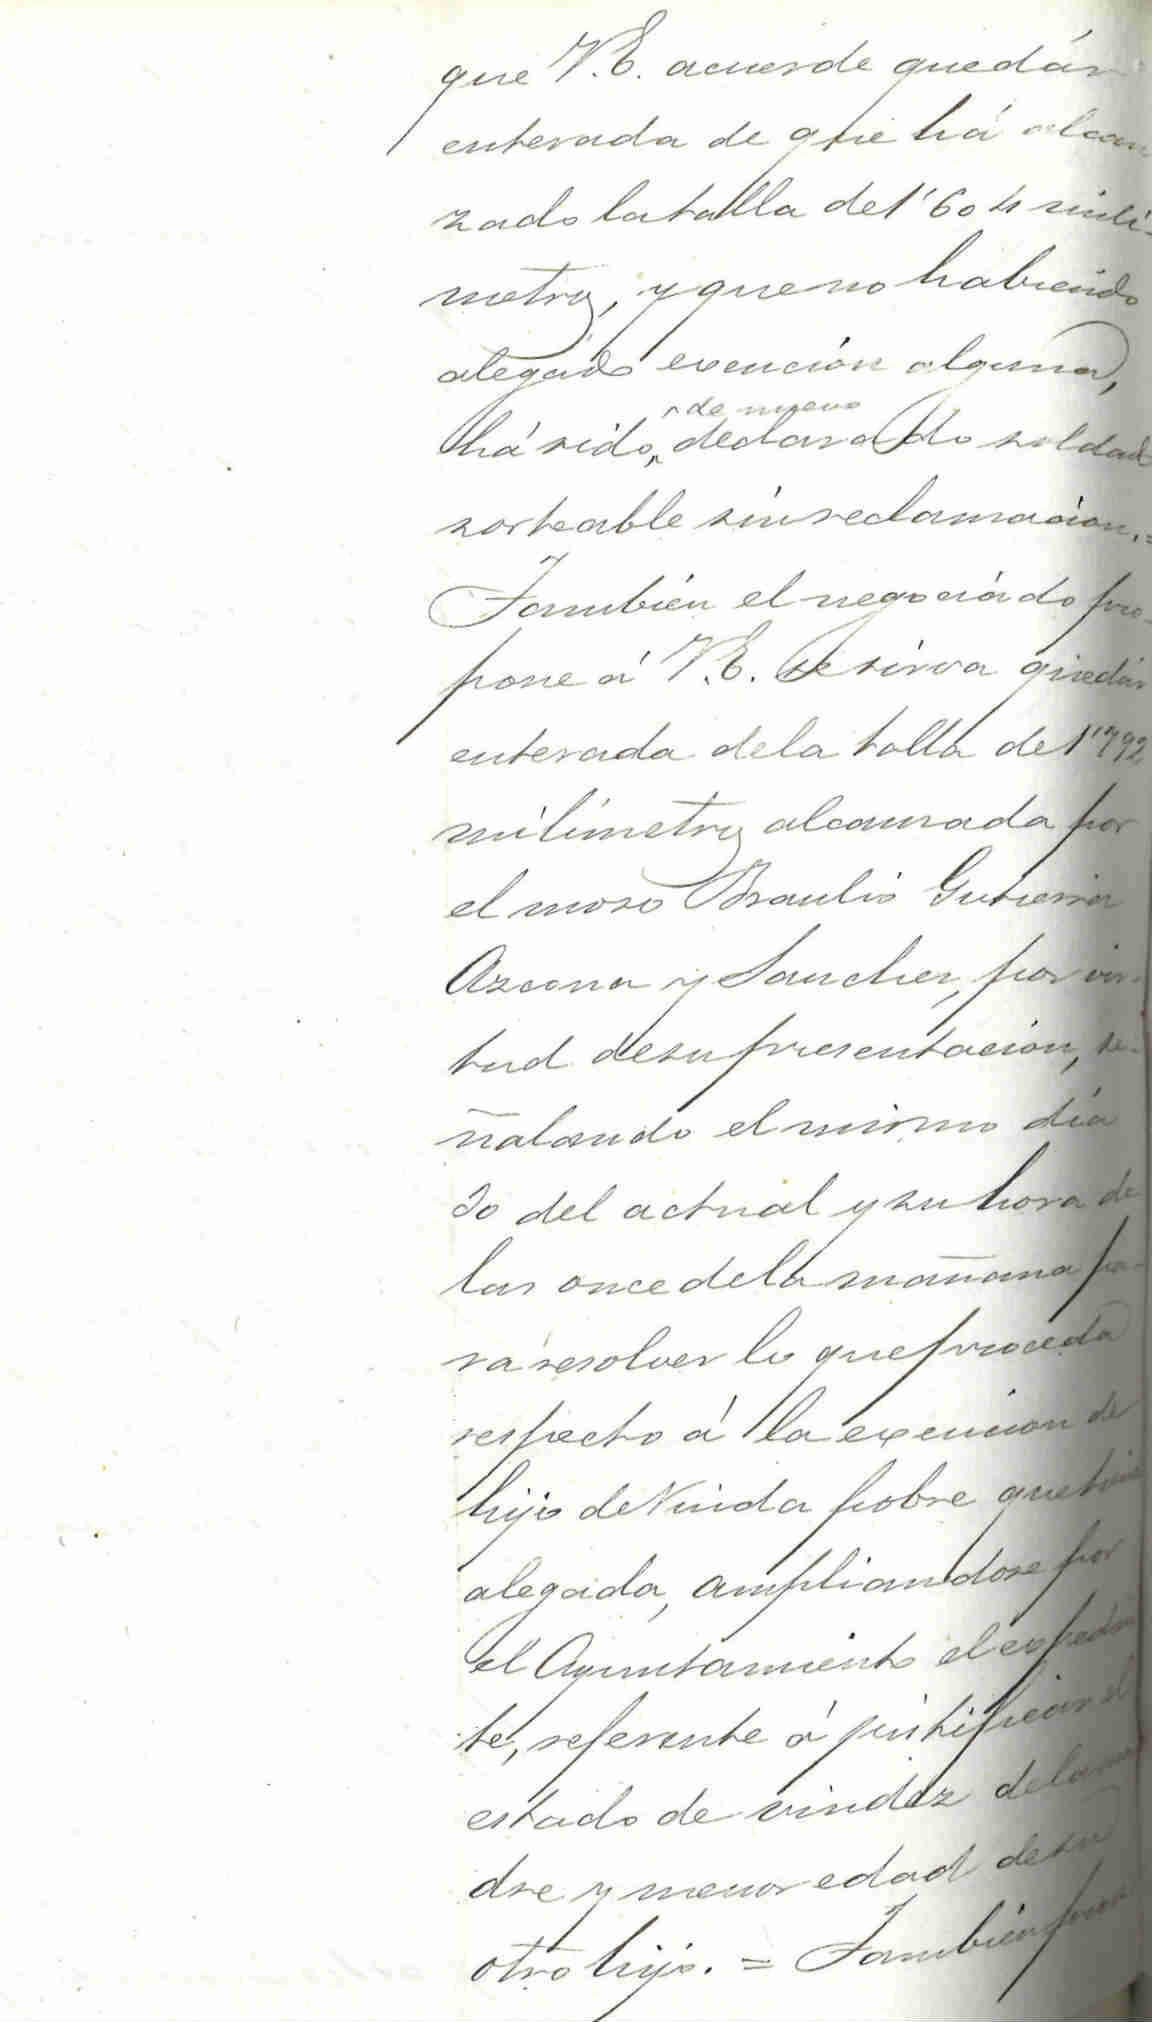 que V.E. acuerde quedár
enterada de que há alcan
zado la talla de 1'604 mili-
metros, y que no habiendo
alegado exención alguna,
de nuevo
há sido, declarado soldado
sorteable sin reclamación. =
También el negociádo pro-
pone á V.E. se sirva quedár
enterada de la talla de 1'792
milímetros alcanzada por
el mozo Braulio Gutierrez
Azcona y Sanchez, por vir-
tud de su presentacion, se-
ñalando el mismo día
30 del actual y su hora de
las once de la mañana pa-
rá resolver lo que proceda
respecto á la exencion de
hijo de Viuda pobre que tiene
alegada, ampliandose por
el Ayuntamiento el expedien
te, referente á justificar el
estado de viudez de la ma
dre y menor edad de su
otro hijo. = También